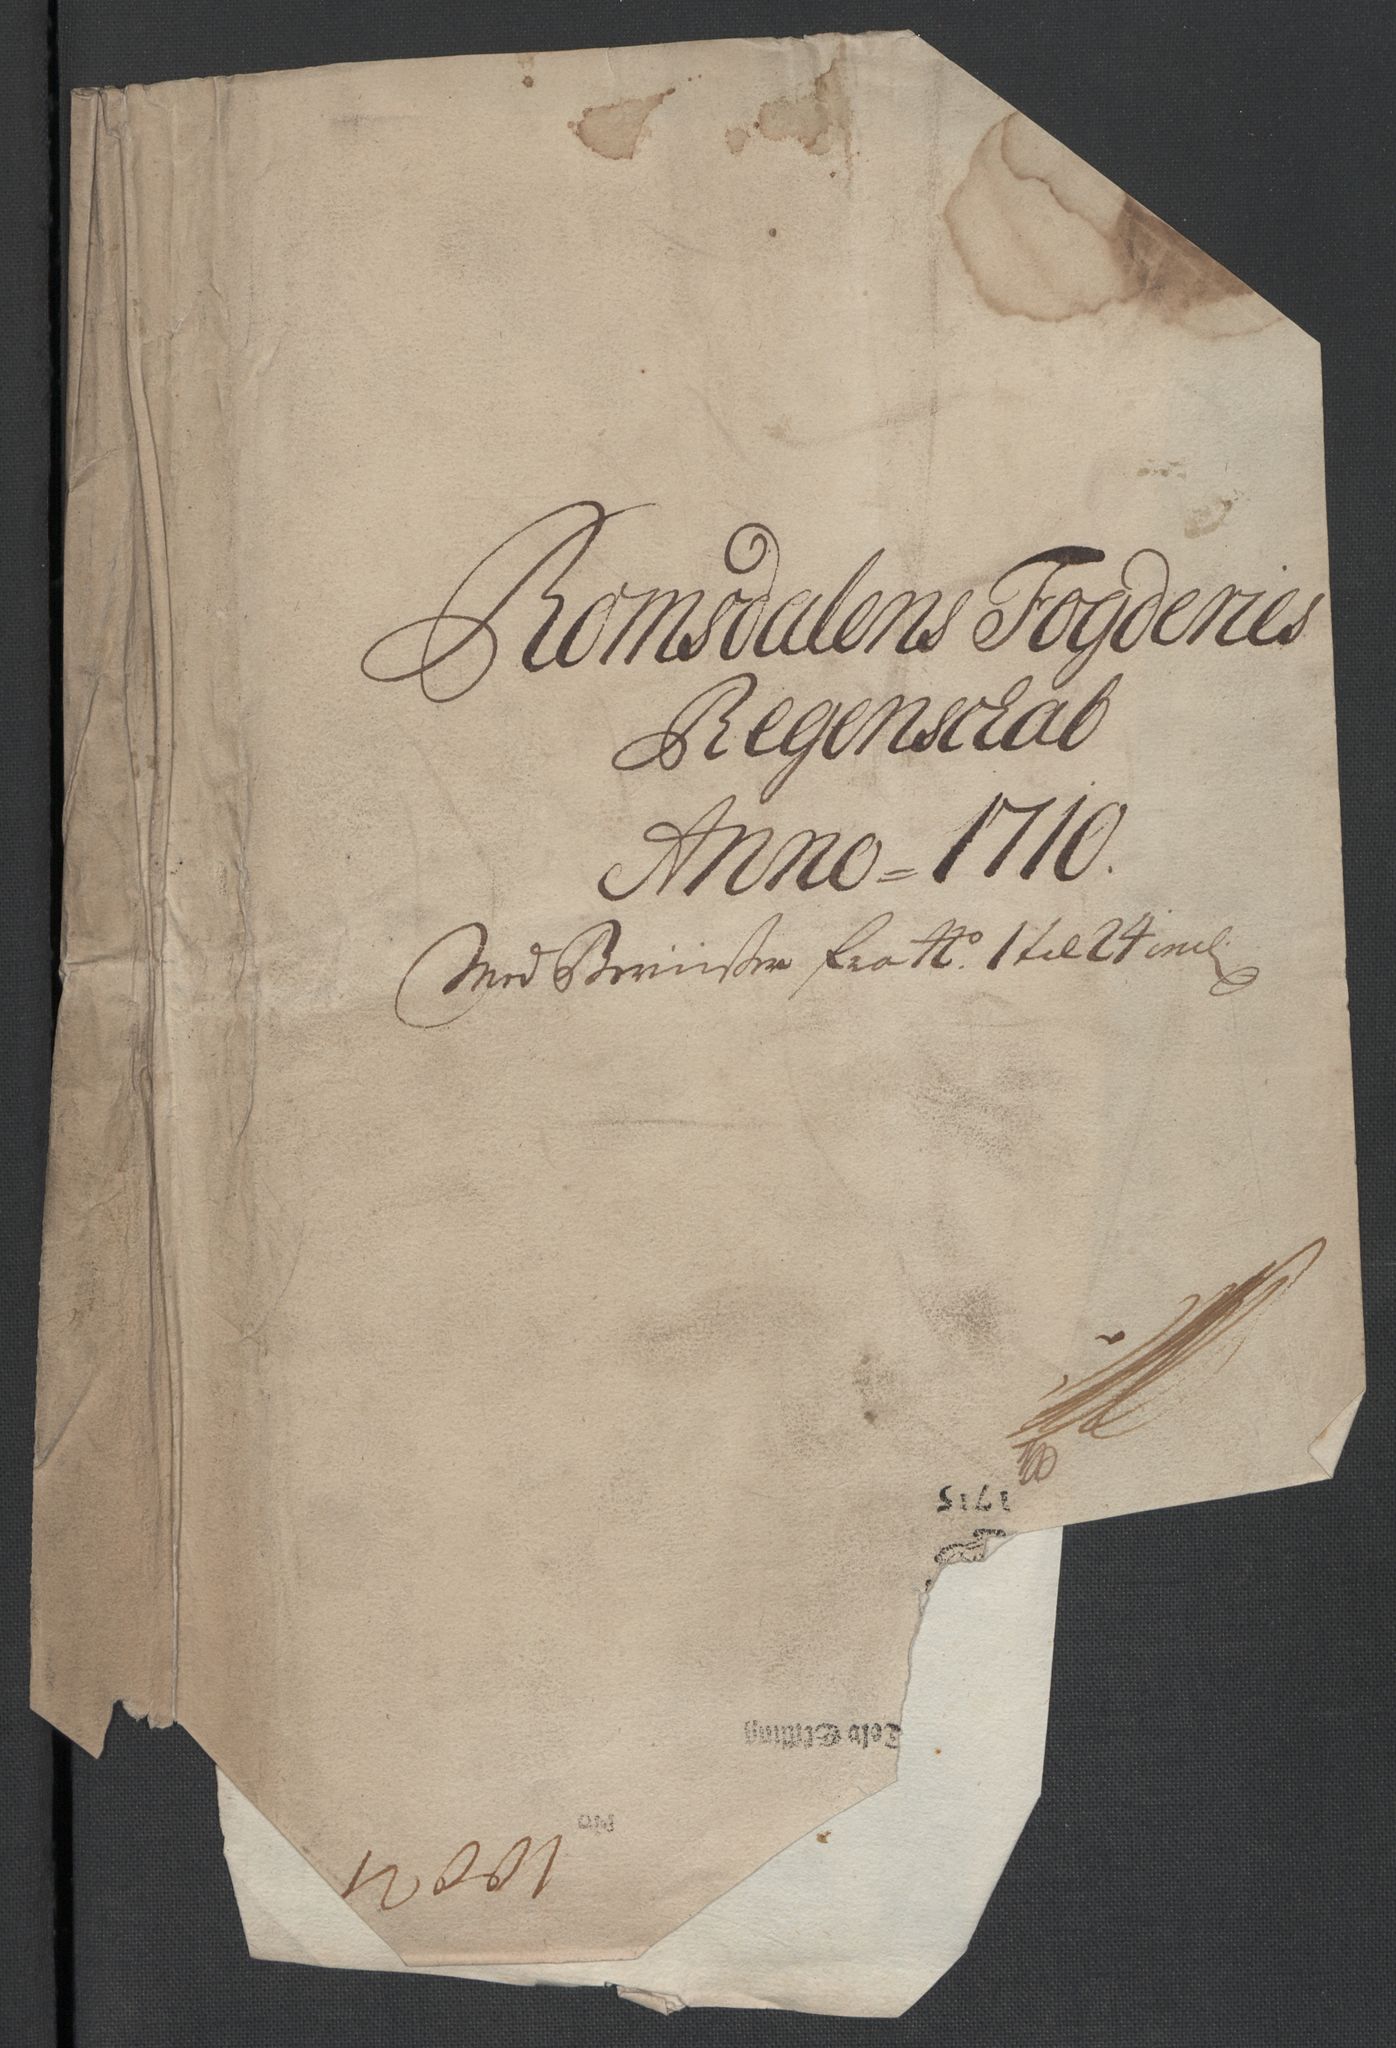 Romsdalens Fogderies
Regenschab
Anno = 1710.
Med Beviister fra No. 1 til 24 incl:
1715
Tolv Skilling